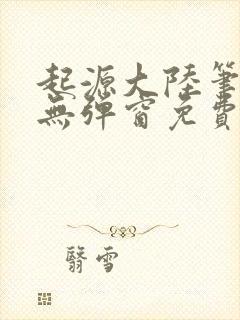 起源大陸筆
無彈窗免費
翳雪